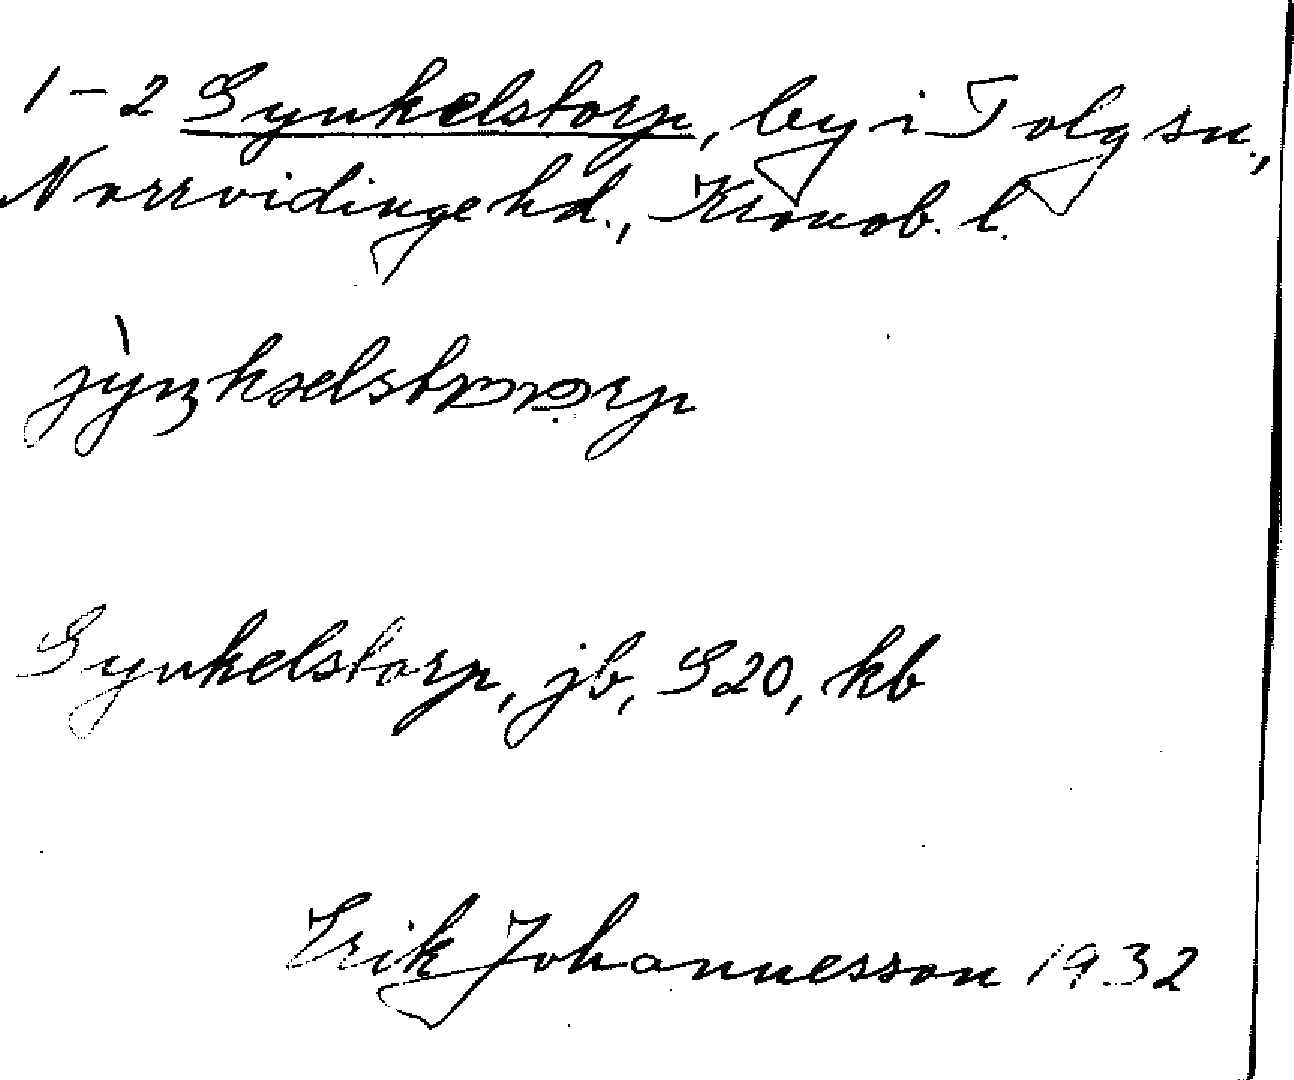 1-2 Synkelstorp, by i Tolg sn.,
Norrvidinge hd., Kronob. l.
Synkelstorp, jb, S20, kb
Erik Johannesson 1932